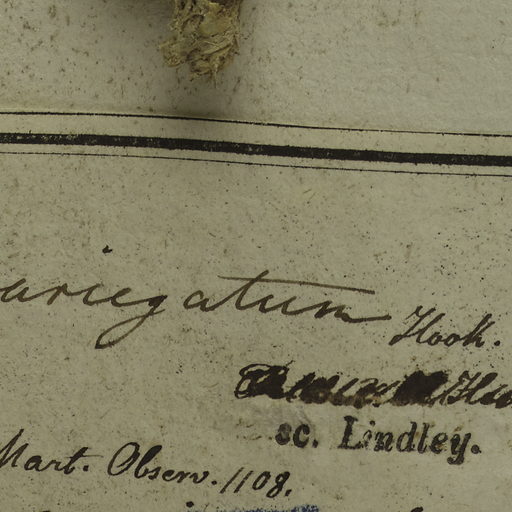 ariegatum Hook.
sc. Lindley.
Mart. Observ. 1108.